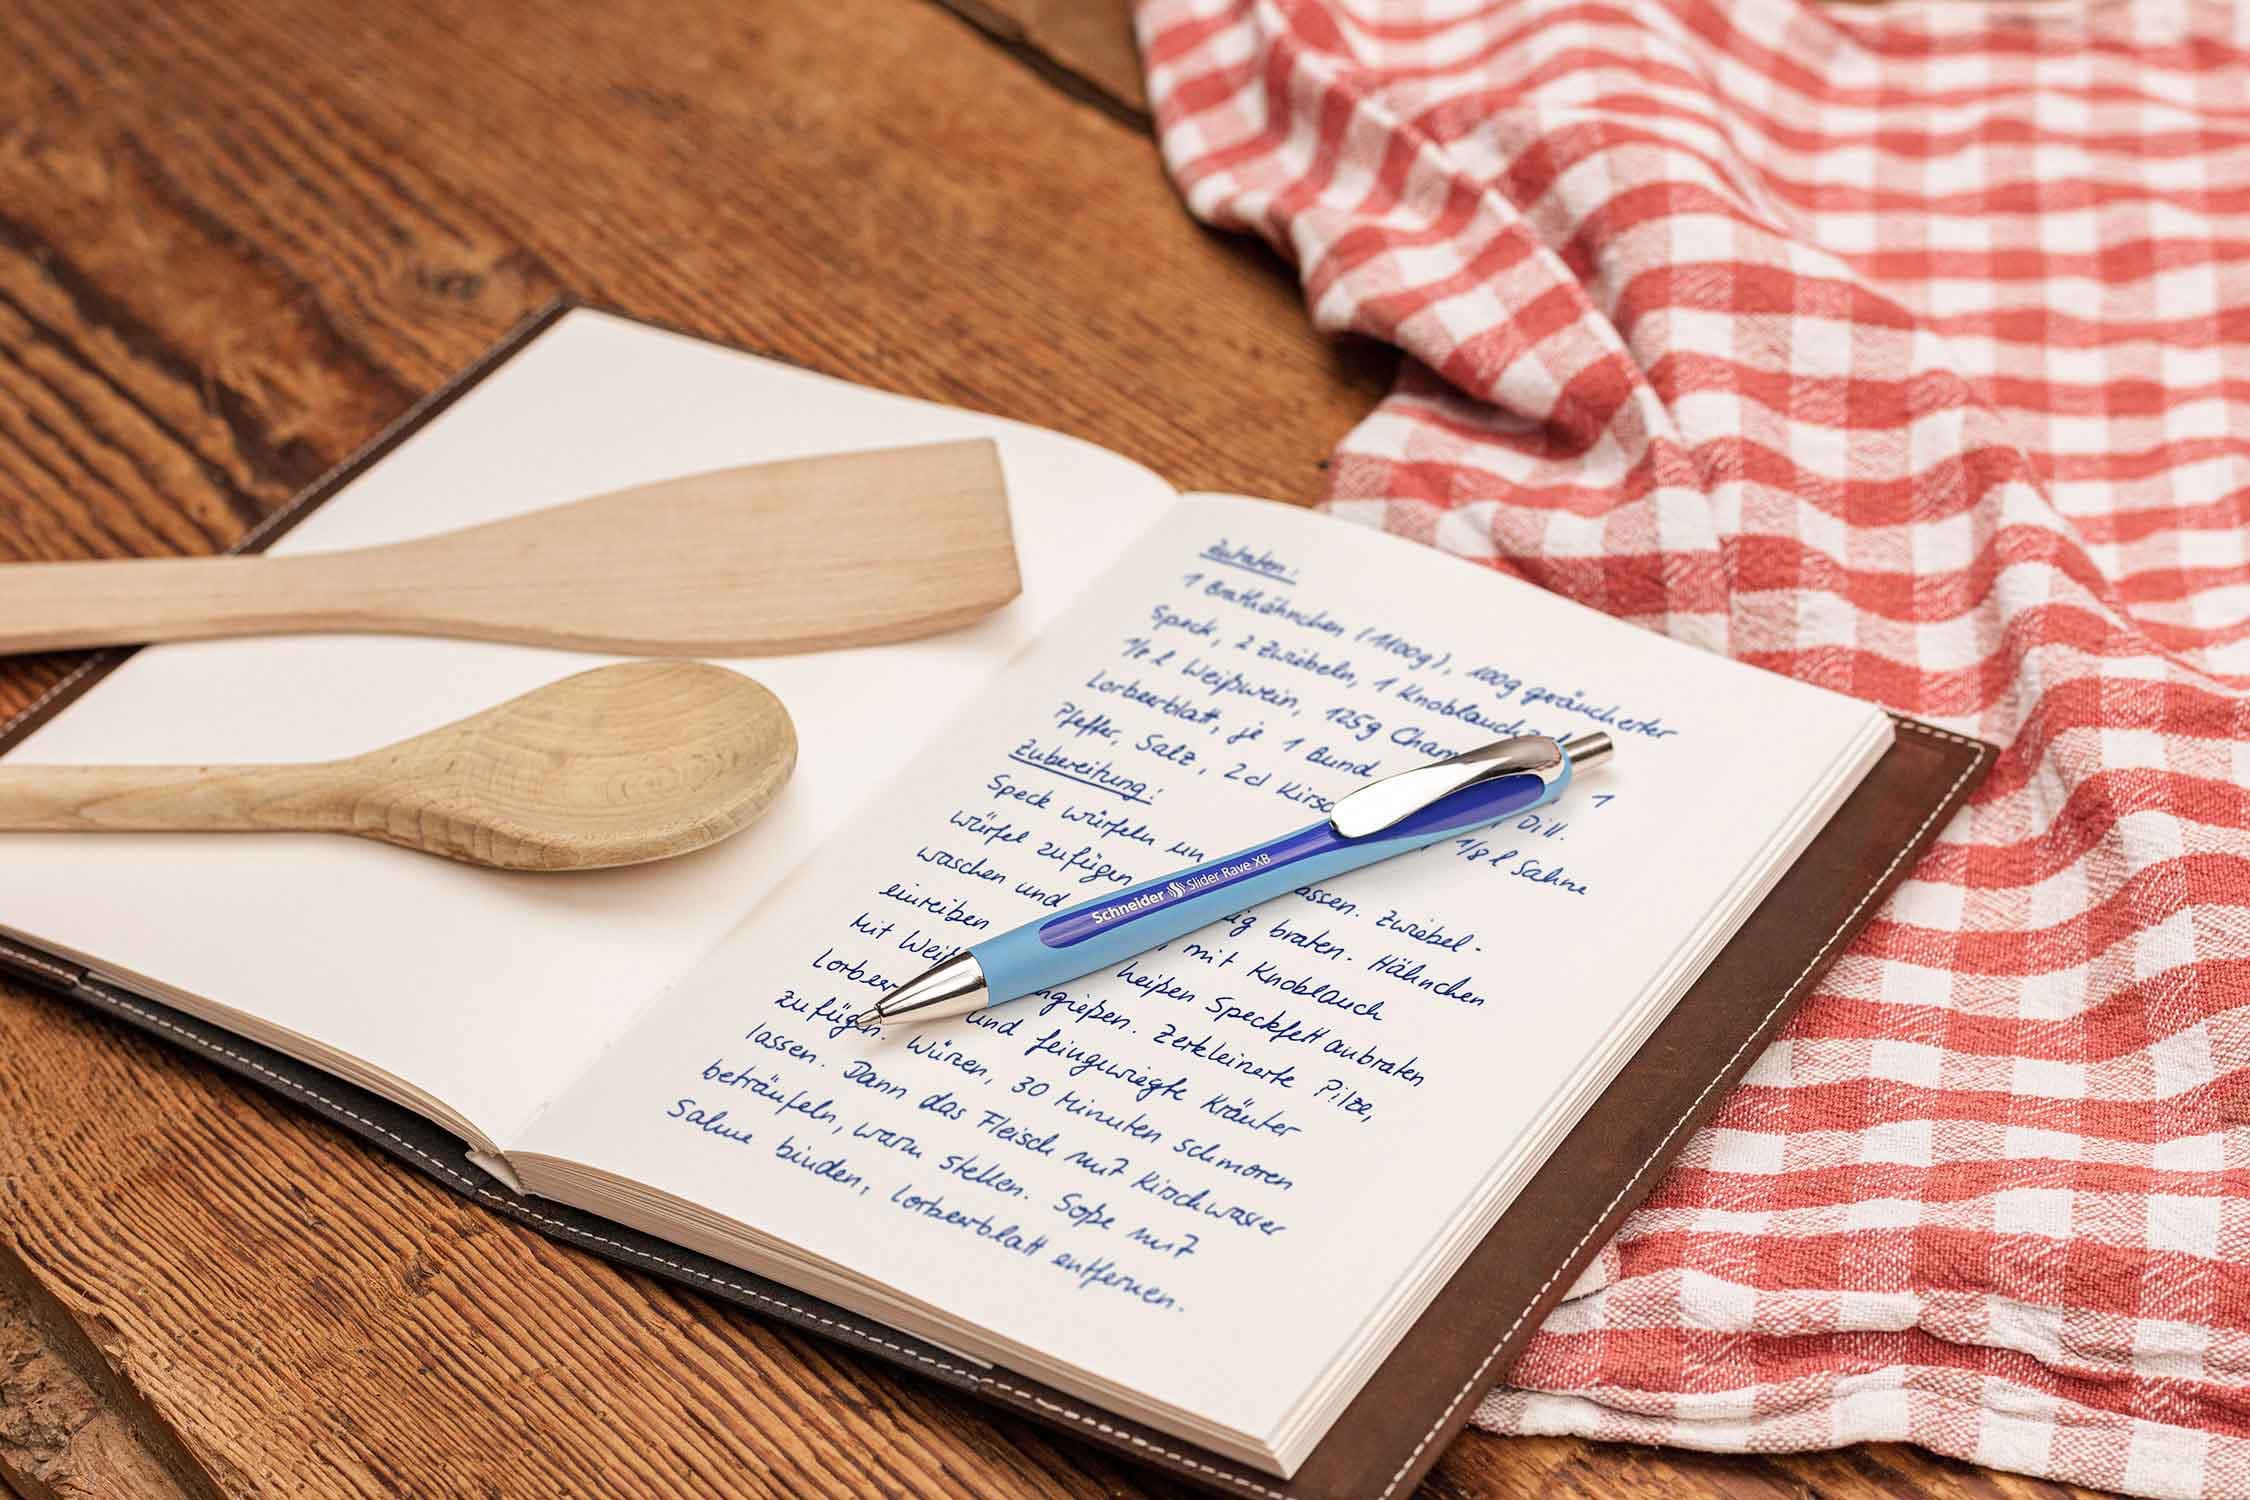 Zutaten:
1 Brathähnchen (1100g), 100g geräucherter
Speck, 2 Zwiebeln, 1 Knoblauchz
1/8 l Weißwein, 125g Cham 1
Lorbeerblatt, je 1 Bund Dill.
Pfeffer, Salz, 2cl Kirsc 1/8 l Sahne
Zubereitung:
Speck würfeln un assen. Zwiebel-
würfel zufügen ig braten. Hähnchen
waschen und mit Knoblauch
einreiben heißen Speckfett anbraten
Mit Wei ngießen. Zerkleinerte Pilze,
Lorbeer und feingewiegte Kräuter
zufügen. Würzen, 30 Minuten schmoren
lassen. Dann das Fleisch mit Kirschwasser
beträufeln, warm stellen. Soße mit
Sahne binden, Lorbeerblatt entfernen.
Schneider Slider Rave XB